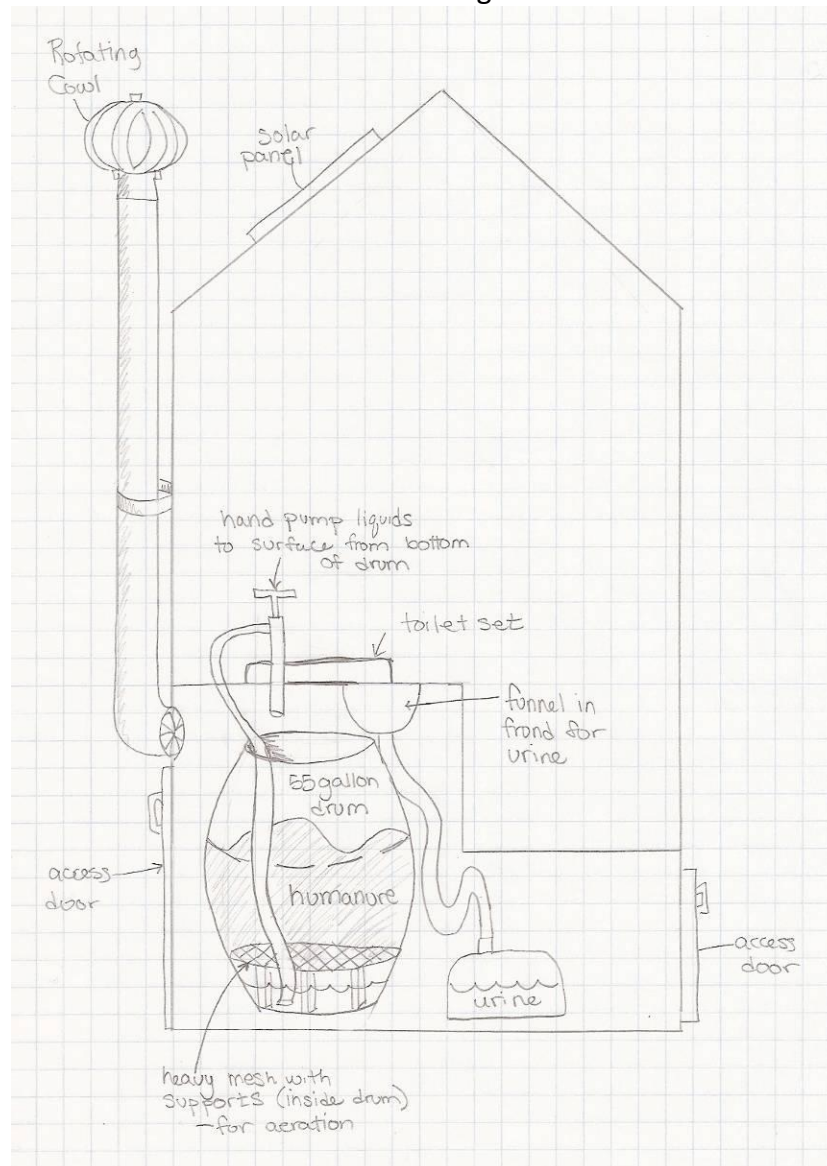 Rotating
Cowl
solar
panel
hand pump liquids
to surface from bottom
of drum
toilet set
funnel in
frond for
urine
55 gallon
drum
humanure
access
door
urine
access
door
heavy mesh with
supports (inside drum)
- for aeration